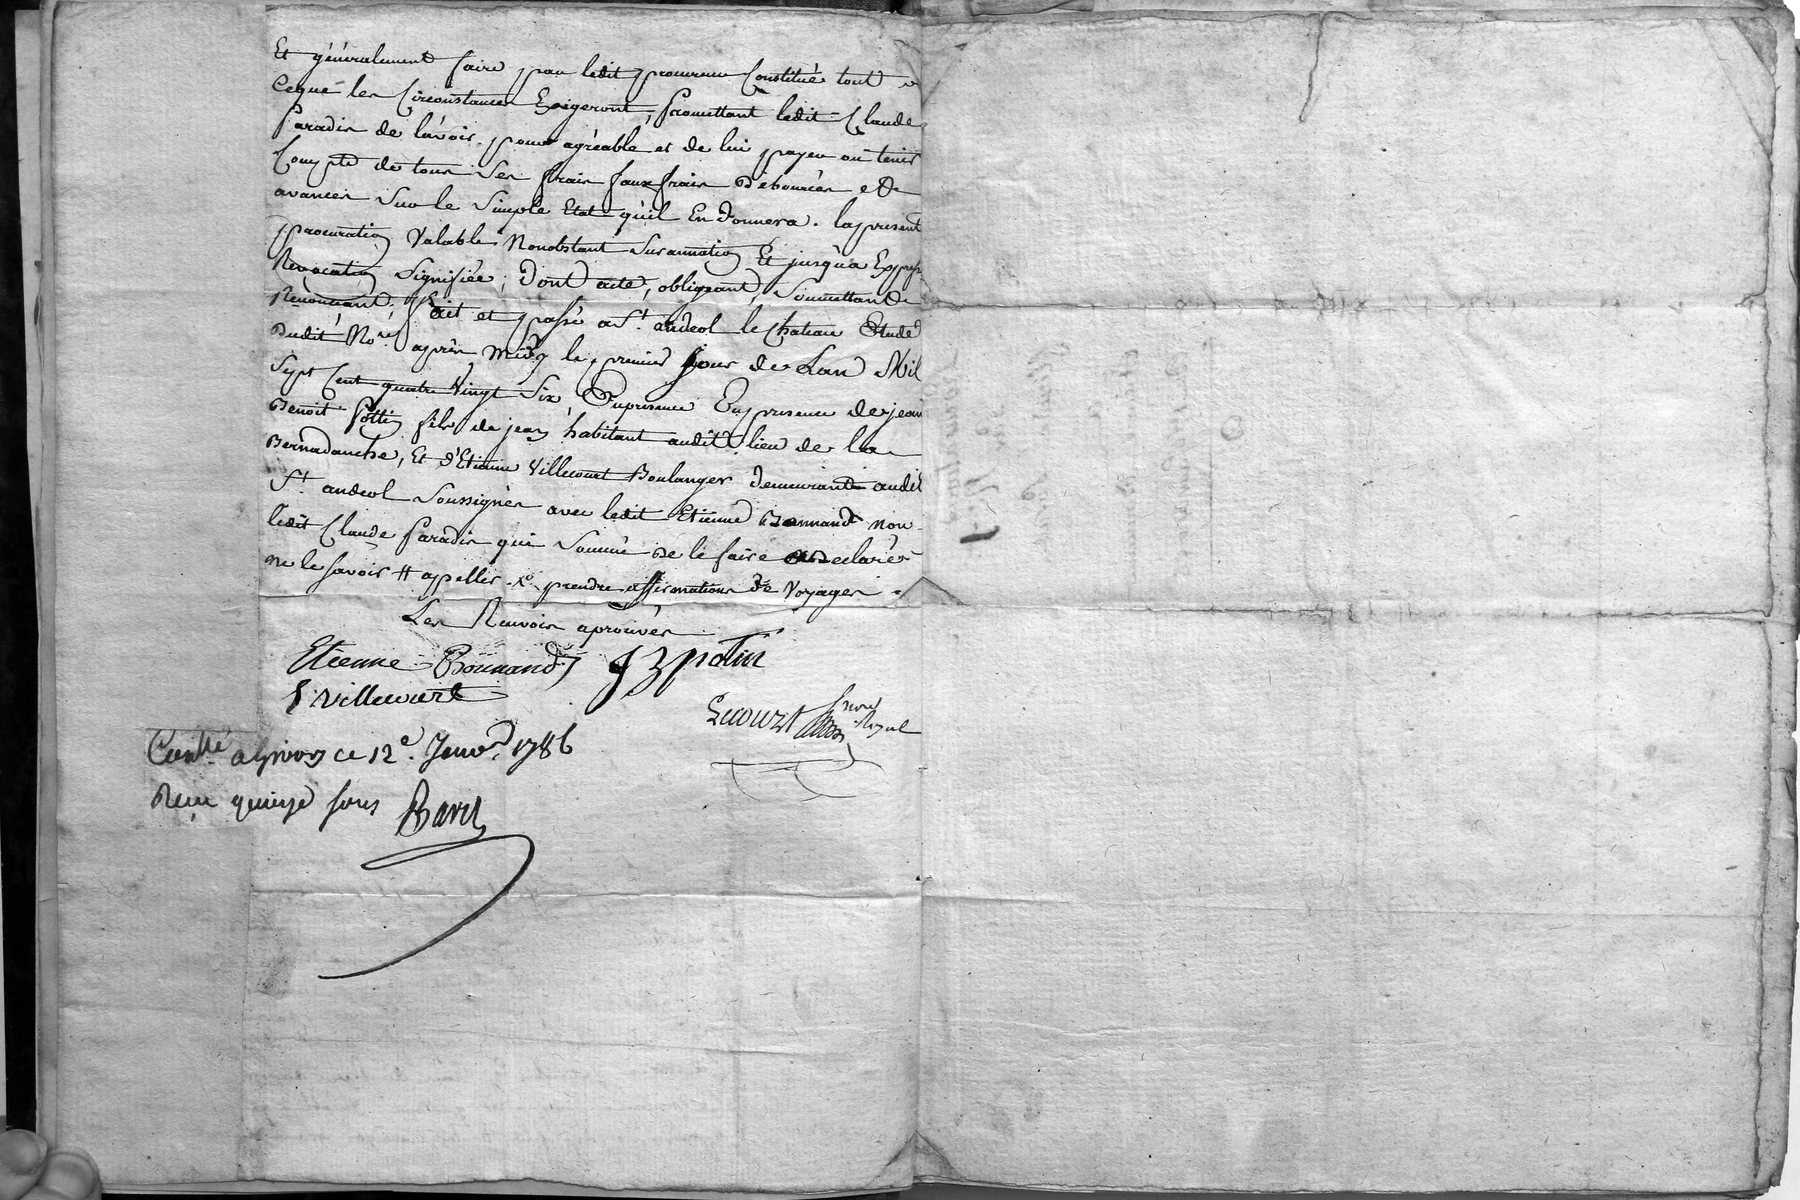 Et généralement faire par ledit procureur Constitué tout
ceque les Circonstances Exigeront, promettant ledit Claude
Paradis de lavoir pour agréable et de lui payer ou tenir
Compte de tous Ses frais fauxfrais Déboursés et
avances Sur le Simple Etat qu'il En donnera. la présent
procuration Valable Nonobstant Surannation Et jusqu'a Express
Revocation Signifiée; Dont acte, obligeant, Soumettant
Renonçant. fait et passé a St. andeol le Chateau Etude
Dudit No.re après midy le premier jour de Lan Mil
Sept Cent quatre Vingt Six En presence de jean
Benoit Pottin fils de jean habitant audit lieu de la
Bernadanche, Et d'Etienne Villecourt Boulanger demeurant audit
St. andeol Soussignés avec ledit Etienne Bonnand non
ledit Claude Paradis qui Sommé De le faire a Declaré
ne le Savoir # appeller. prendre affirmations de Voyages.
Les Renvois aprouvés
Etienne Bonnand J B potin
E villecourt
Lecourt Royal
Con.llé a Givors ce 12e. Janv.r 1786
Reçu quinze Sous